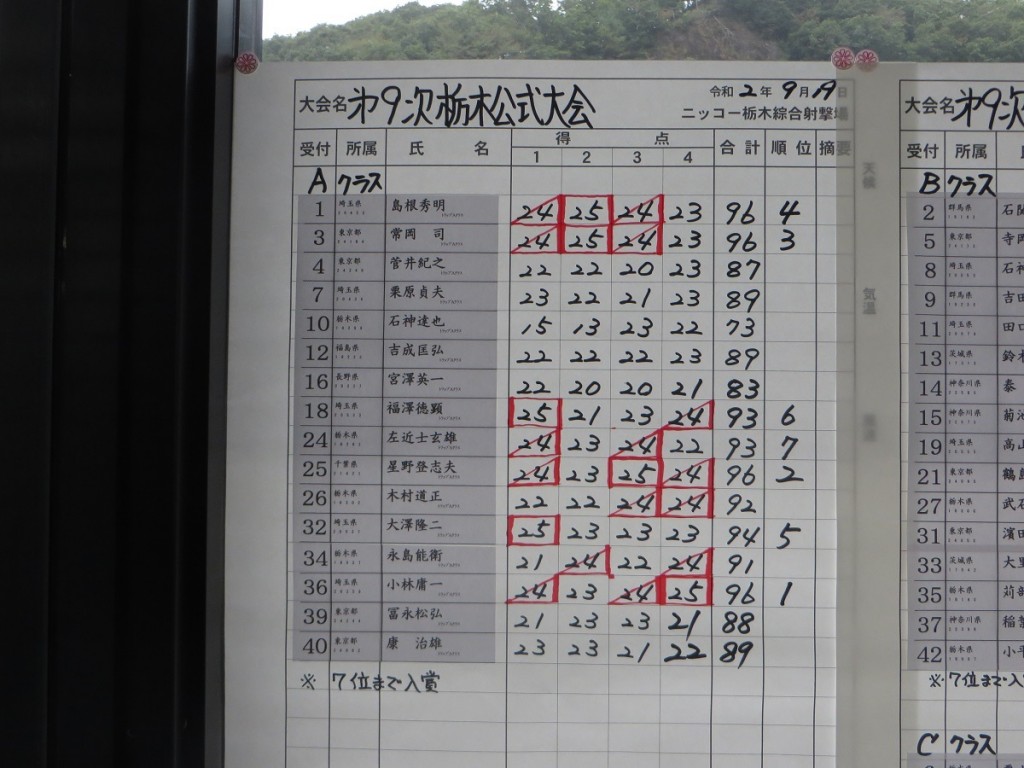 大会名 第9次栃木公式大会
令和 2 年 9 月 19 日
ニッコー栃木綜合射撃場
受付 所属 氏 名 得 点 合計 順位 摘要
1 2 3 4
A クラス
1 埼玉県 島根秀明 24 25 24 23 96 4
3 東京都 常岡 司 24 25 24 23 96 3
4 東京都 菅井紀之 22 22 20 23 87
7 埼玉県 栗原貞夫 23 22 21 23 89
10 栃木県 石神達也 15 13 23 22 73
12 福島県 吉成匡弘 22 22 22 23 89
16 長野県 宮澤英一 22 20 20 21 83
18 埼玉県 福澤徳顕 25 21 23 24 93 6
24 栃木県 左近士玄雄 24 23 24 22 93 7
25 千葉県 星野登志夫 24 23 25 24 96 2
26 栃木県 木村道正 22 22 24 24 92
32 埼玉県 大澤隆二 25 23 23 23 94 5
34 栃木県 永島能衛 21 24 22 24 91
36 埼玉県 小林庸一 24 23 24 25 96 1
39 東京都 冨永松弘 21 23 23 21 88
40 東京都 康 治雄 23 23 21 22 89
※ 7位まで入賞
天候
気温
大会名 第9次
受付 所属
B クラス
2 群馬県 石
5 東京都 寺岡
8 埼玉県 石神
9 群馬県 吉田
11 埼玉県 田口
13 茨城県 鈴木
14 神奈川県 泰
15 神奈川県 菊池
19 埼玉県 高山
21 東京都 鶴島
27 栃木県 武石
31 東京都 濱田
33 茨城県 大里
35 栃木県 苅部
37 神奈川県 稲
42 栃木県 小平
※ 7位まで入
C クラス